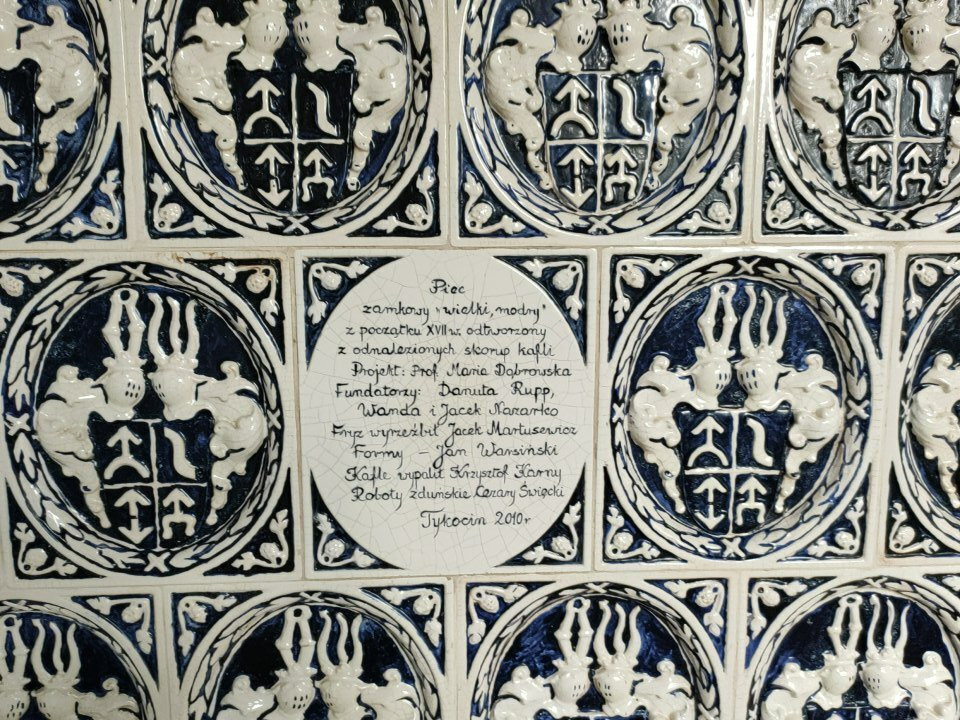 Piec
zamkowy "wielki, modny"
z początku XVII w. odtworzony
z odnalezionych skorup kafli
Projekt: Prof. Maria Dąbrowska
Fundatorzy: Danuta Rupp,
Wanda i Jacek Nazarko
Fryz wyrzeźbił Jacek Martusewicz
Formy – Jan Warsiński
Kafle wypalił Krzysztof Karny
Roboty zduńskie Cezary Święcki
Tykocin 2010 r